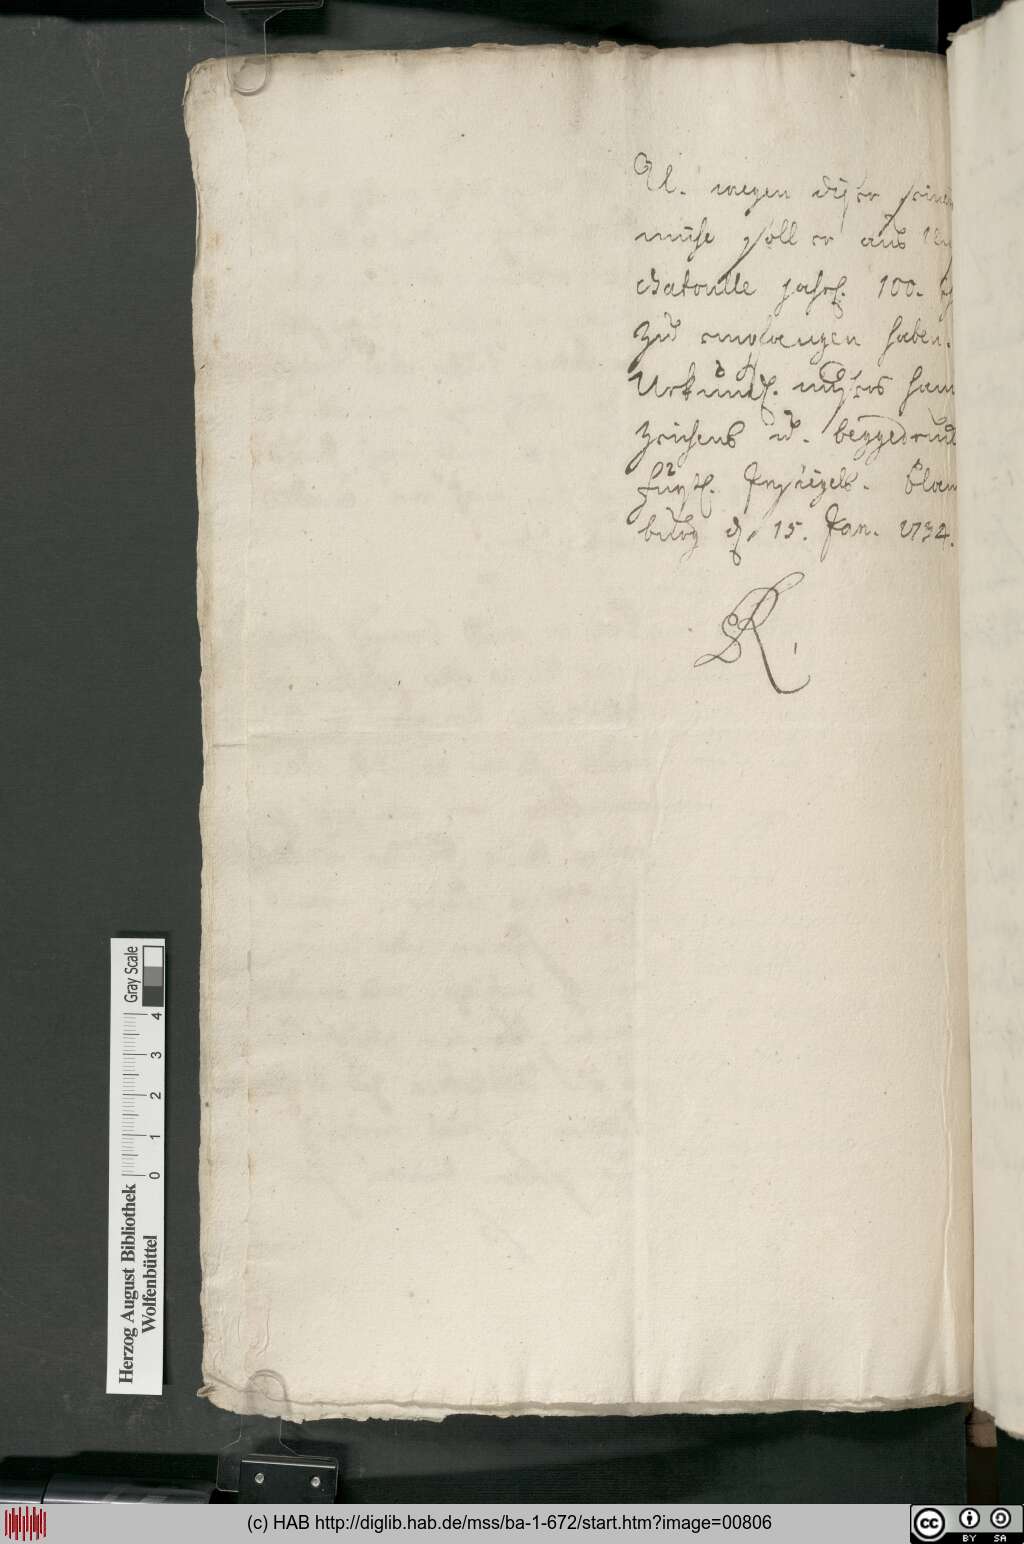 U. wegen dißer seiner
mühe soll er aus Un
chatoulle jährl. 100. 
zu empfangen haben.
Urkundl. unßers han
zeichens u. beygedruck
fürstl. Insiegels. Blan
burg d. 15. Jan. 1734.
LR
Herzog August Bibliothek
Wolfenbüttel
0 1 2 3 4
Gray Scale
(c) HAB http://diglib.hab.de/mss/ba-1-672/start.htm?image=00806
cc BY SA